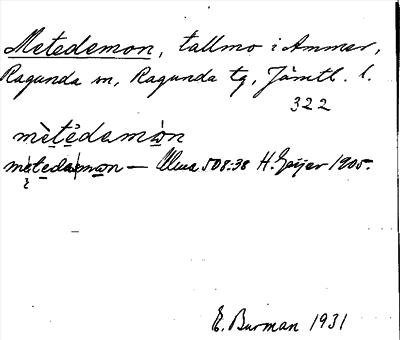 Metedemon, tallmo i Ammer,
Ragunda sn, Ragunda tg, Jämtl. l.
322
mètèdamòn
metedamon — Ulma 508:38 H. Geijer 1905.
E. Burman 1931